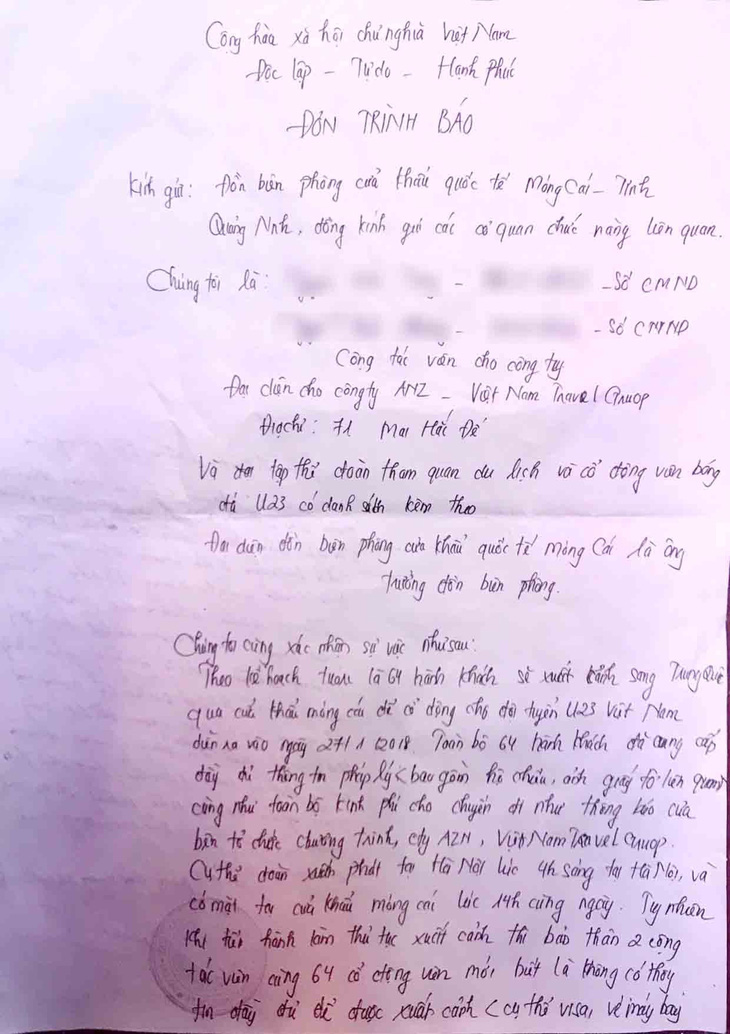 Cộng hòa xã hội chủ nghĩa Việt Nam
Độc lập - Tự do - Hạnh phúc
ĐƠN TRÌNH BÁO
Kính gửi: Đồn biên phòng cửa khẩu quốc tế Móng Cái - Tỉnh
Quảng Ninh, đồng kính gửi các cơ quan chức năng liên quan.
Chúng tôi là: - - Số CMND
- - Số CMND
Cộng tác viên cho công ty
Đại diện cho công ty ANZ - Việt Nam Travel Gruop
Địa chỉ: 71 Mai Hắc Đế
Và tập thể đoàn tham quan du lịch và cổ động viên bóng
đá U23 có danh sách kèm theo
Đại diện đồn biên phòng cửa khẩu quốc tế Móng Cái là ông
Trưởng đồn biên phòng.
Chúng tôi cùng xác nhận sự việc như sau:
Theo kế hoạch tuor là 64 hành khách sẽ xuất cảnh sang Trung Quốc
qua cửa khẩu móng cái để cổ động cho đội tuyển U23 Việt Nam
diễn ra vào ngày 27/1/2018. Toàn bộ 64 hành khách đã cung cấp
đầy đủ thông tin pháp lý < bao gồm hộ chiếu, ảnh giấy tờ liên quan
cũng như toàn bộ kinh phí cho chuyến đi như thông báo của
bên tổ chức chương trình, cty AZN, Việt Nam Travel Gruop.
Cụ thể đoàn xuất phát tại Hà Nội lúc 4h sáng tại Hà Nội, và
có mặt tại cửa khẩu móng cái lúc 14h cùng ngày. Tuy nhiên
khi tiến hành làm thủ tục xuất cảnh thì bản thân 2 cộng
tác viên cùng 64 cổ động viên mới biết là không có thông
tin đầy đủ để được xuất cảnh < cụ thể visa, vé máy bay